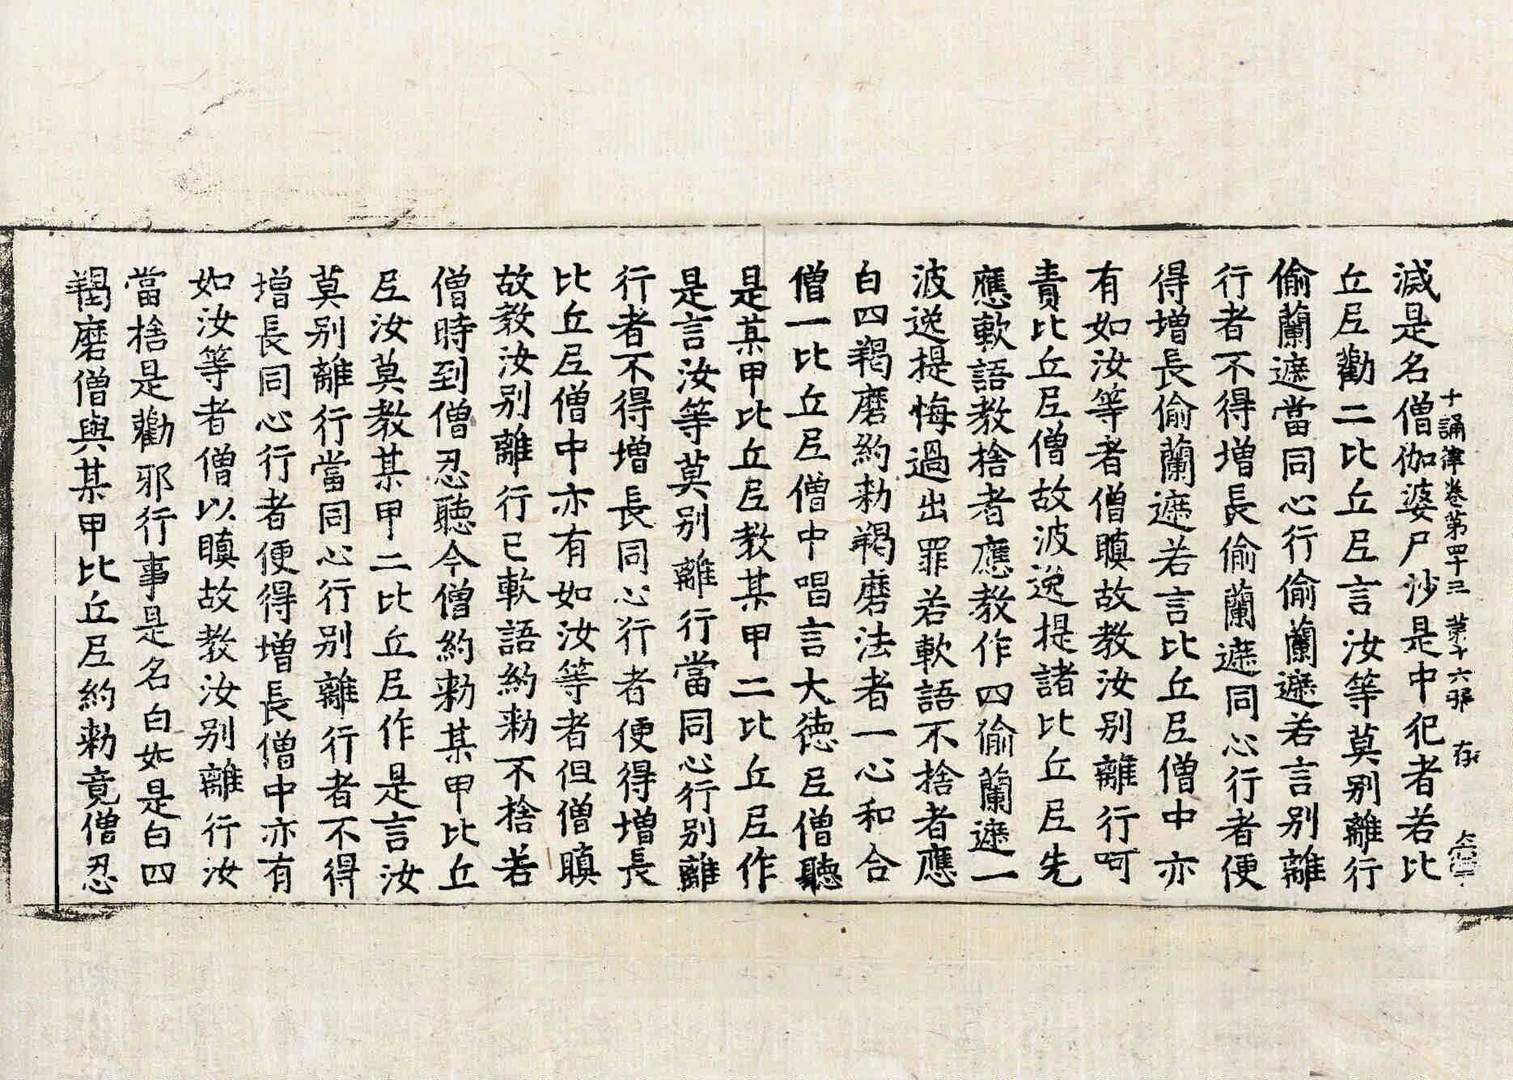 十誦律卷第四十三 第十六張 存
滅是名僧伽婆尸沙是中犯者若比
丘尼勸二比丘尼言汝等莫別離行
偷蘭遮當同心行偷蘭遮若言別離
行者不得增長偷蘭遮同心行者便
得增長偷蘭遮若言比丘尼僧中亦
有如汝等者僧瞋故教汝別離行呵
責比丘尼僧故波逸提諸比丘尼先
應軟語教捨者應教作四偷蘭遮一
波逸提悔過出罪若軟語不捨者應
白四羯磨約勑羯磨法者一心和合
僧一比丘尼僧中唱言大德尼僧聽
是某甲比丘尼教某甲二比丘尼作
是言汝等莫別離行當同心行別離
行者不得增長同心行者便得增長
比丘尼僧中亦有如汝等者但僧瞋
故教汝別離行已軟語約勑不捨若
僧時到僧忍聽今僧約勑某甲比丘
尼汝莫教某甲二比丘尼作是言汝
莫別離行當同心行別離行者不得
增長同心行者便得增長僧中亦有
如汝等者僧以瞋故教汝別離行汝
當捨是勸邪行事是名白如是白四
羯磨僧與某甲比丘尼約勑竟僧忍